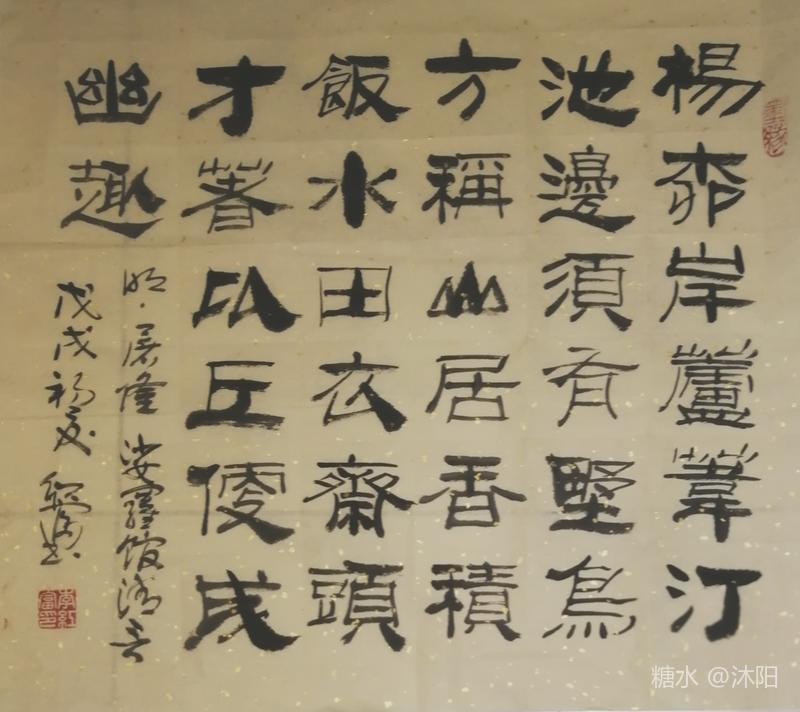 楊柳岸蘆葦汀
池邊須有墅鳥
方稱山居香積
飯水田衣齋頭
才著比丘便成
幽趣
明·屠隆 娑羅館清言
戊戌初夏 書
糖水 @沐阳